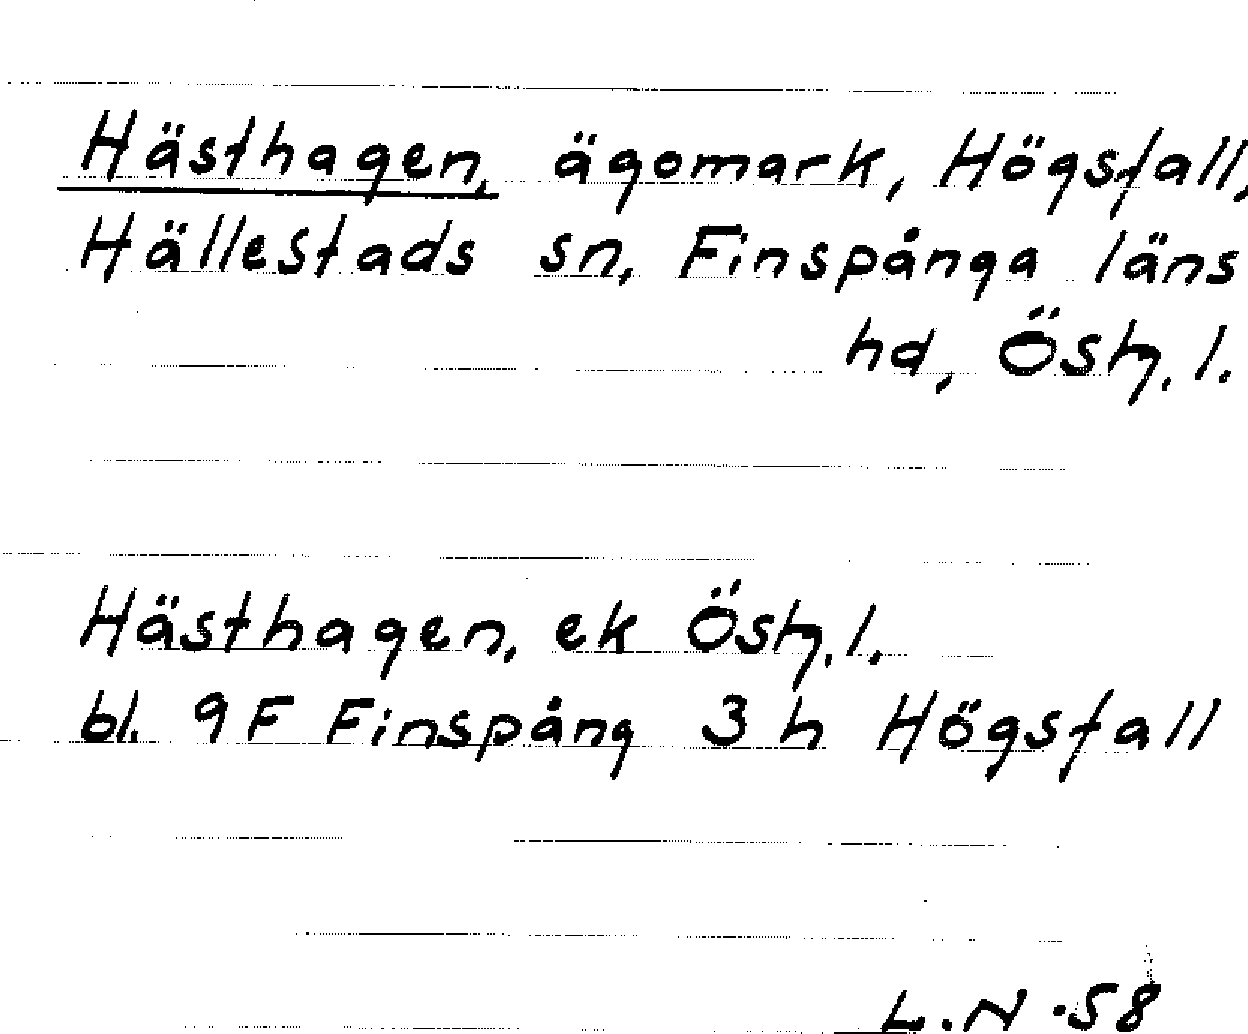 Hästhagen, ägomark, Högsfall,
Hällestads sn, Finspånga läns
hd, Östg. l.
Hästhagen, ek Östg. l.
bl. 9F Finspång 3 h Högsfall
L.N -58